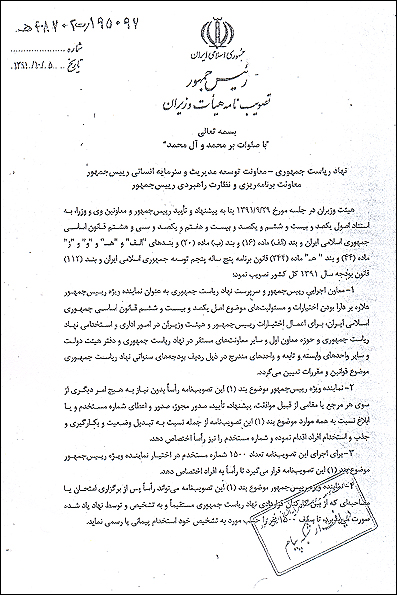 ۱۹۵۰۹۷/ت۴۸۷۰۲هـ
شماره
تاریخ ۱۳۹۱/۱۰/۰۵
جمهوری اسلامی ایران
رئیس جمهور
تصویب نامه هیأت وزیران
بسمه تعالی
"با صلوات بر محمد و آل محمد"
نهاد ریاست جمهوری – معاونت توسعه مدیریت و سرمایه انسانی رییس‌جمهور
معاونت برنامه‌ریزی و نظارت راهبردی رییس‌جمهور
هیئت وزیران در جلسه مورخ ۱۳۹۱/۹/۲۹ بنا به پیشنهاد و تأیید رییس‌جمهور و معاونین وی و وزراء به
استناد اصول یکصد و بیست و ششم و یکصد و بیست و هفتم و یکصد و سی و هشتم قانون اساسی
جمهوری اسلامی ایران و بند (الف) ماده (۱۶) و بند (ب) ماده (۲۰) و بندهای "الف" و "هـ" و "و" و "ز"
ماده (۴۴) و بند "هـ" ماده (۲۲۴) قانون برنامه پنج ساله پنجم توسعه جمهوری اسلامی ایران و بند (۱۱۲)
قانون بودجه سال ۱۳۹۱ کل کشور تصویب نمود:
۱– معاون اجرایی رییس‌جمهور و سرپرست نهاد ریاست جمهوری به عنوان نماینده ویژه رییس‌جمهور
علاوه بر دارا بودن اختیارات و مسئولیت‌های موضوع اصل یکصد و بیست و ششم قانون اساسی جمهوری
اسلامی ایران، برای اعمال اختیارات رییس‌جمهور و هیئت وزیران در امور اداری و استخدامی نهاد
ریاست جمهوری و حوزه معاون اول و سایر معاونیت‌های مستقر در نهاد ریاست جمهوری و دفتر هیئت دولت
و سایر واحدهای وابسته و تابعه و واحدهای مندرج در ذیل ردیف بودجه‌های سنواتی نهاد ریاست جمهوری
موضوع قوانین و مقررات تعیین می‌گردد.
۲– نماینده ویژه رییس‌جمهور موضوع بند (۱) این تصویب‌نامه رأساً بدون نیاز به هیچ امر دیگری از
سوی هر مرجع یا مقامی از قبیل موافقت، پیشنهاد، تأیید، صدور مجوز، صدور و اعطای شماره مستخدم و یا
ابلاغ نسبت به همه موارد موضوع بند (۱) این تصویب‌نامه از جمله نسبت به تبدیل وضعیت و بکارگیری و
جذب و استخدام افراد اقدام نموده و شماره مستخدم را نیز رأساً اختصاص دهد.
۳– برای اجرای این تصویب‌نامه تعداد ۱۵۰۰ شماره مستخدم در اختیار نماینده ویژه رییس‌جمهور
موضوع بند (۱) این تصویب‌نامه قرار می‌گیرد تا رأساً به افراد اختصاص دهد.
۴– نماینده ویژه رییس‌جمهور موضوع بند (۱) این تصویب‌نامه می‌تواند رأساً پس از برگزاری امتحان یا
مصاحبه‌ای که از بین کارکنان قراردادی نهاد ریاست جمهوری مستقیماً و به تشخیص و توسط نهاد یاد شده
صورت می‌گیرد، تا سقف ۱۵۰۰ نفر را حسب مورد به تشخیص خود استخدام پیمانی یا رسمی نماید.
۱